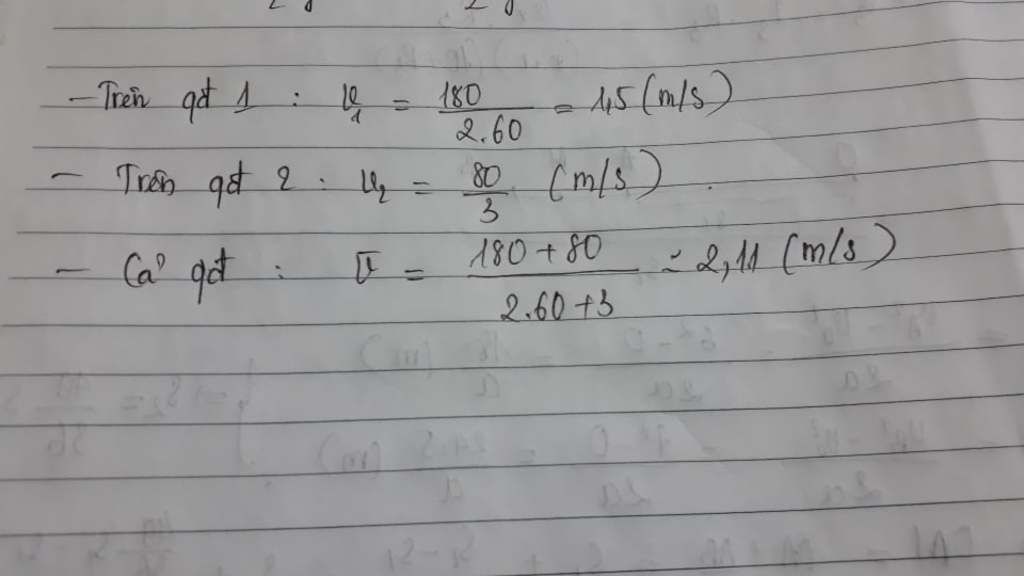 - Trên qđ 1 : v₁ = 180/2.60 = 1,5 (m/s)
- Trên qđ 2 : v₂ = 80/3 (m/s)
- Cả qđ : v̄ = 180+80/2.60+3 ≃ 2,11 (m/s)